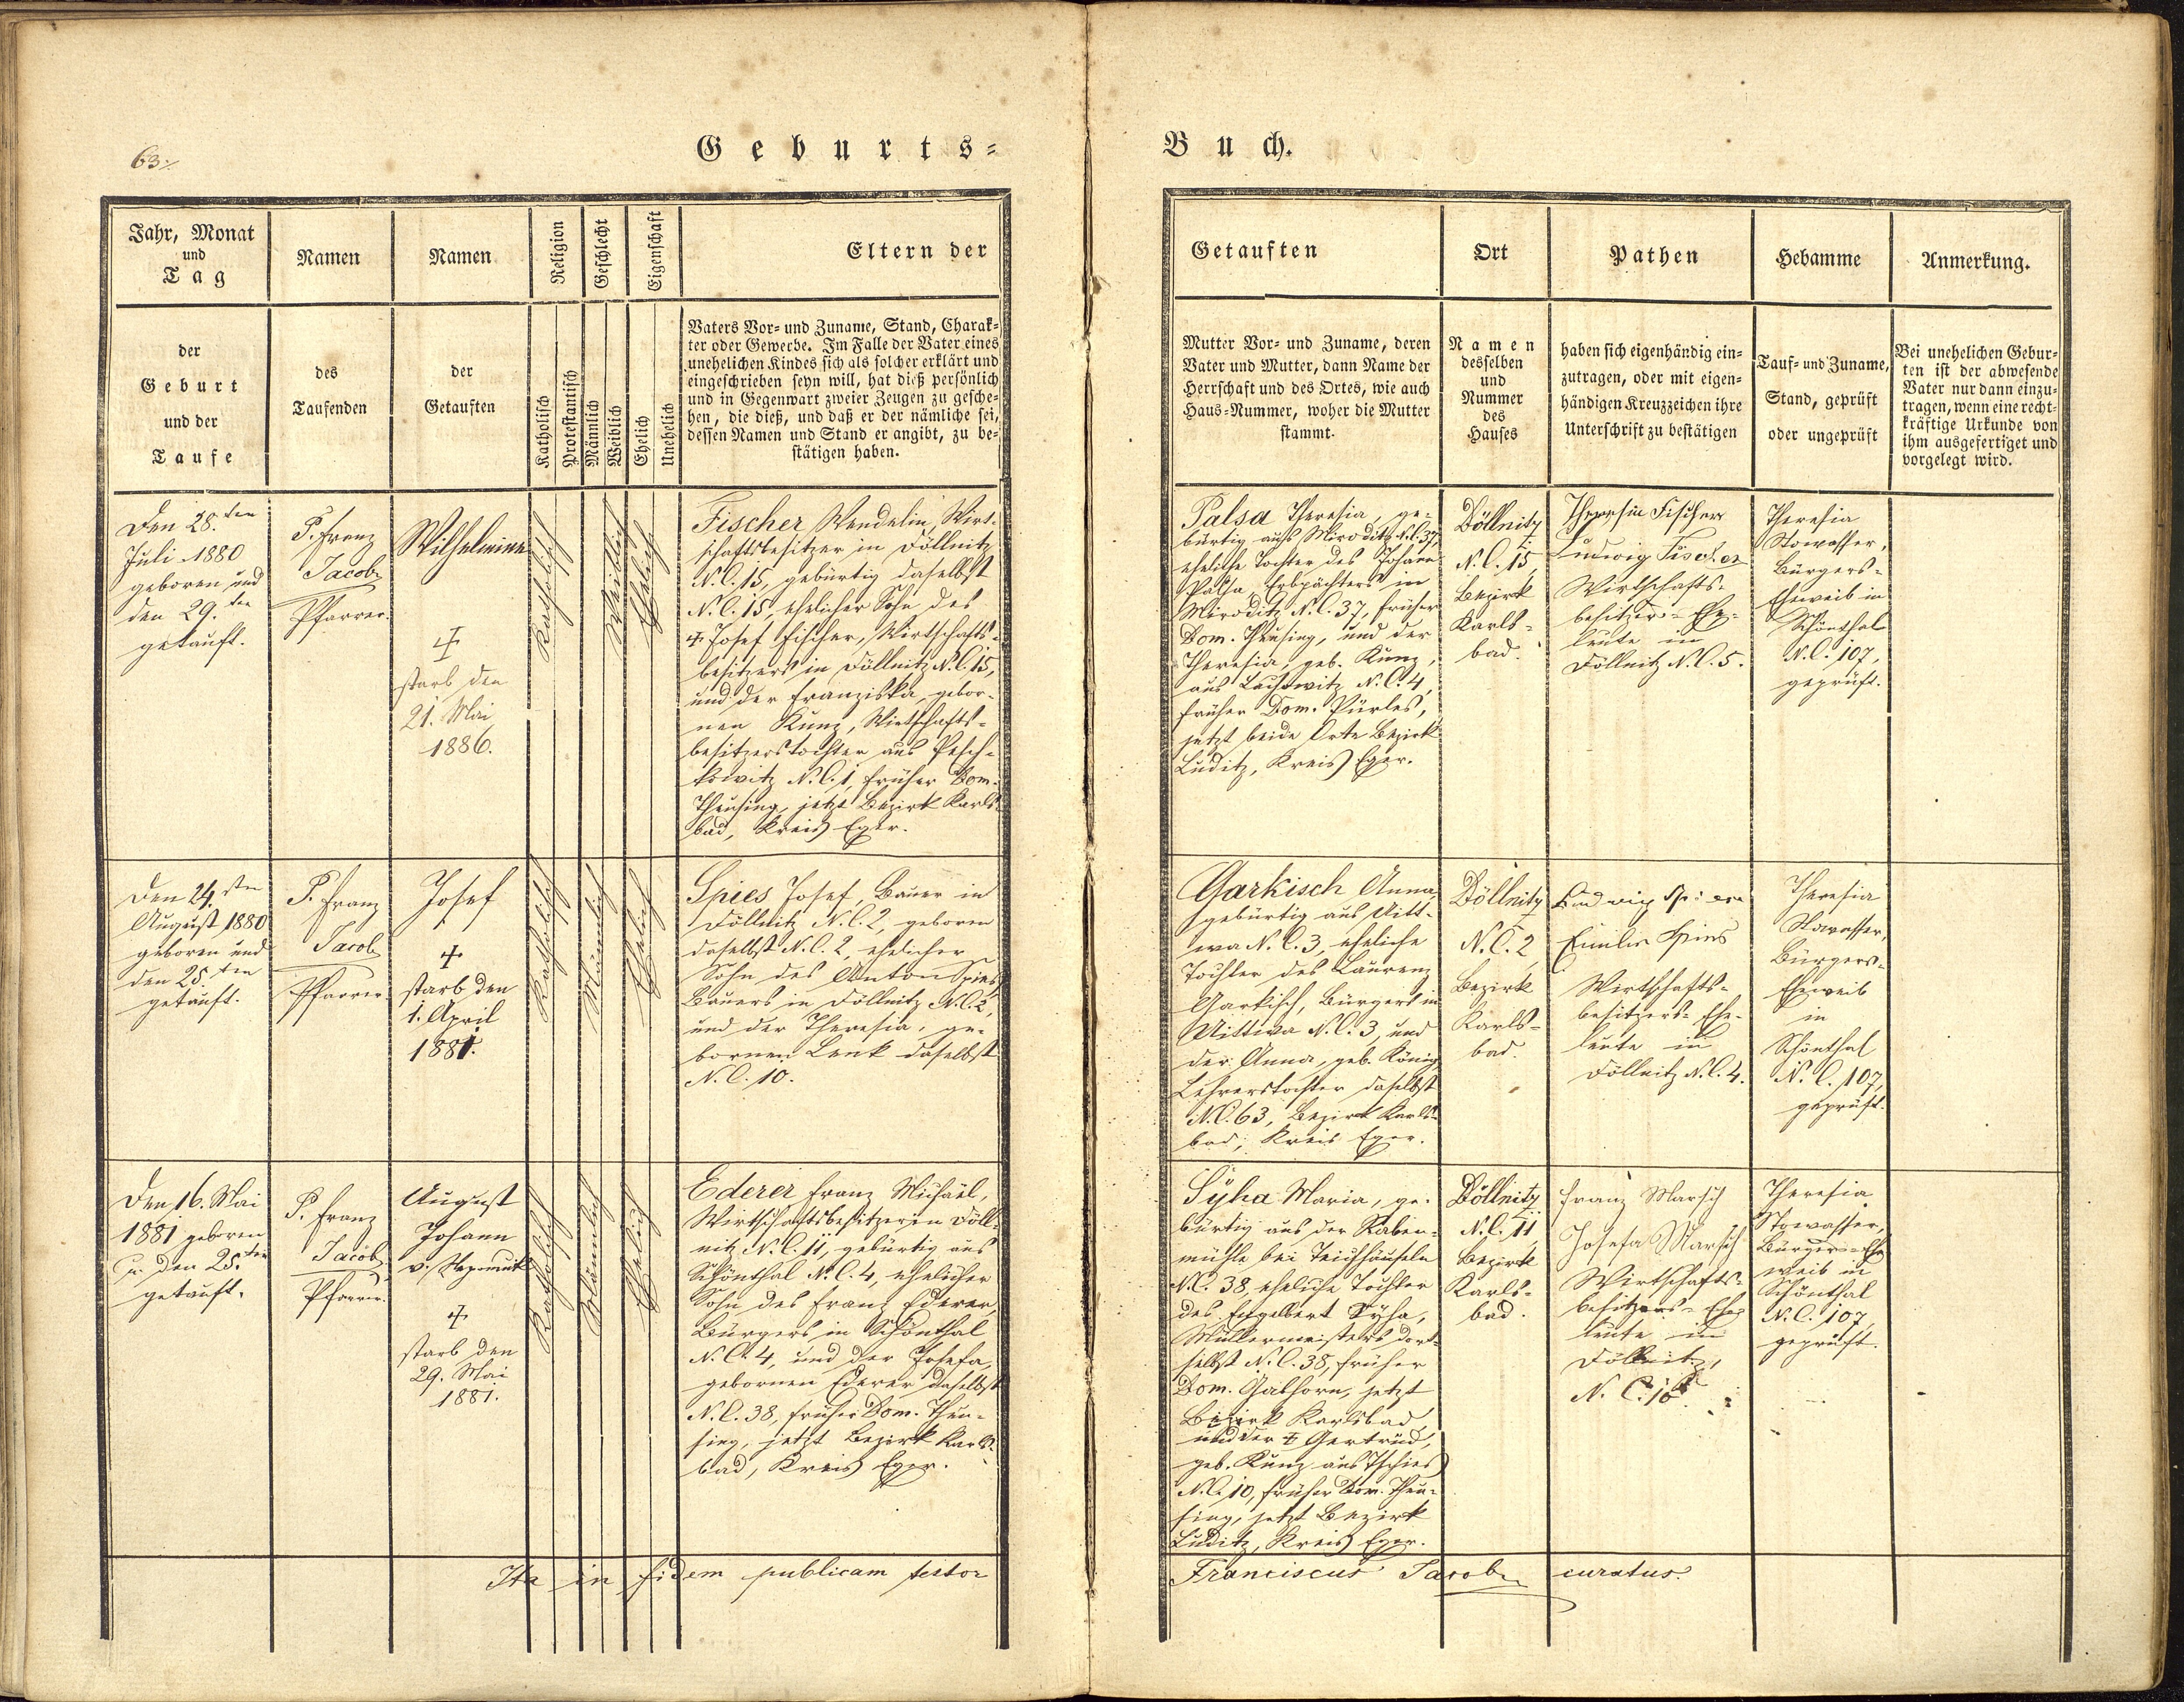 63./.
Geburts=
Jahr, Monat
und
Tag
Namen
Namen
Religion
Geschlecht
Eigenschaft
Eltern der
der
Geburt
und der
Taufe
des
Taufenden
der
Getauften
Katholisch
Protestantisch
Männlich
Weiblich
Ehelich
Unehelich
Vaters Vor= und Zuname, Stand, Charak=
ter oder Gewerbe. Im Falle der Vater eines
unehelichen Kindes sich als solcher erklärt und
eingeschrieben seyn will, hat dieß persönlich
und in Gegenwart zweier Zeugen zu gesche=
hen, die dieß, und daß er der nämliche sei,
dessen Namen und Stand er angibt, zu be=
stätigen haben.
Den 28.ten
Juli 1880
geboren und
den 29.ten
getauft.
P. Franz
Jacob
Pfarrer.
Wilhelmine
+
starb den
21. Mai
1886.
Katholisch
Weiblich
Ehelich
Fischer Wendelin, Wirt-
schaftsbesitzer in Döllnitz
N.C. 15, gebürtig daselbst
N.C. 15, ehelicher Sohn des
+ Josef Fischer, Wirtschafts-
besitzers in Döllnitz N.C. 15,
und der Franziska, gebor-
nen Kunz, Wirtschafts-
besitzerstochter aus Pesch-
kowitz N.C. 1, früher Dom.
Theusing, jetzt Bezirk Karls-
bad, Kreis Eger.
Den 24.sten
August 1880
geboren und
den 25.ten
getauft.
P. Franz
Jacob
Pfarrer.
Josef
+
starb den
1. April
1881.
Katholisch
Männlich
Ehelich
Spies Josef, Bauer in
Döllnitz N.C. 2, geboren
daselbst N.C. 2, ehelicher
Sohn des Anton Spies,
Bauers in Döllnitz N.C. 2,
und der Theresia, ge-
bornen Lenk daselbst
N.C. 10.
Den 16. Mai
1881 geboren
u. den 25.ten
getauft.
P. Franz
Jacob
Pfarrer.
August
Johann
v. Nepomuk
+
starb den
29. Mai
1881.
Katholisch
Männlich
Ehelich
Ederer Franz Michael,
Wirtschaftsbesitzer in Döll-
nitz N.C. 11, gebürtig aus
Schönthal N.C. 4, ehelicher
Sohn des Franz Ederer,
Bürgers in Schönthal
N.C. 4, und der Josefa,
gebornen Ederer daselbst
N.C. 38, früher Dom. Theu-
sing, jetzt Bezirk Karls-
bad, Kreis Eger.
Ita in fidem publicam testor
Buch.
Getauften
Ort
Pathen
Hebamme
Anmerkung.
Mutter Vor= und Zuname, deren
Vater und Mutter, dann Name der
Herrschaft und des Ortes, wie auch
Haus=Nummer, woher die Mutter
stammt.
Namen
desselben
und
Nummer
des
Hauses
haben sich eigenhändig ein=
zutragen, oder mit eigen=
händigen Kreuzzeichen ihre
Unterschrift zu bestätigen
Tauf= und Zuname,
Stand, geprüft
oder ungeprüft
Bei unehelichen Gebur=
ten ist der abwesende
Vater nur dann einzu=
tragen, wenn eine recht=
kräftige Urkunde von
ihm ausgefertiget und
vorgelegt wird.
Palsa Theresia, ge-
bürtig aus Miroditz N.C. 37,
eheliche Tochter des Johann
Palsa, Erbpächters in
Miroditz N.C. 37, früher
Dom. Theusing, und der
Theresia, geb. Kunz,
aus N.C. 4,
früher Dom. Pürles,
jetzt beide Orte Bezirk
Luditz, Kreis Eger.
Döllnitz
N.C. 15,
Bezirk
Karls-
bad.
Theresia Fischer
Ludwig Fischer
Wirtschafts-
besitzers-Ehe-
leute in
Döllnitz N.C. 5.
Theresia
Stowasser,
Bürgers-
Eheweib in
Schönthal
N.C. 107,
geprüft.
Garkisch Anna,
gebürtig aus Uitt-
wa N.C. 3, eheliche
Tochter des Laurenz
Garkisch, Bürgers in
Uittwa N.C. 3, und
der Anna, geb. König,
Lehrerstochter daselbst
N.C. 63, Bezirk Karls-
bad, Kreis Eger.
Döllnitz
N.C. 2,
Bezirk
Karls-
bad.
Ludwig Spies
Emilie Spies
Wirtschafts-
besitzers-Ehe-
leute in
Döllnitz N.C. 4.
Theresia
Stowasser,
Bürgers-
Eheweib
in
Schönthal
N.C. 107,
geprüft.
Syha Maria, ge-
bürtig aus der Raben-
mühle bei Teichhäuseln
N.C. 38, eheliche Tochter
des Engelbert Syha,
Müllermeisters dort-
selbst N.C. 38, früher
Dom. Gabhorn, jetzt
Bezirk Karlsbad
und der + Gertrud,
geb. Kunz aus Tschies
N.C. 10, früher Dom. Theu-
sing, jetzt Bezirk
Luditz, Kreis Eger.
Döllnitz
N.C. 11,
Bezirk
Karls-
bad.
Franz Marsch
Josefa Marsch
Wirtschafts-
besitzers-Ehe-
leute in
Döllnitz,
Theresia
Stowasser,
Bürgers-Ehe-
weib in
Schönthal
N.C. 107,
geprüft.
Franciscus Jacob curatus.